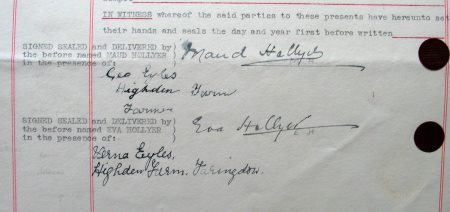 IN WITNESS whereof the said parties to these presents have hereunto set
their hands and seals the day and year first before written
SIGNED SEALED AND DELIVERED by
the before named MAUD HOLLYER
in the presence of:
Maud Hollyer
Geo Eyles
Highden Farm
Farmer
SIGNED SEALED AND DELIVERED by
the before named EVA HOLLYER
in the presence of:
Eva Hollyer
E H
Verna Eyles,
Highden Farm. Faringdon.